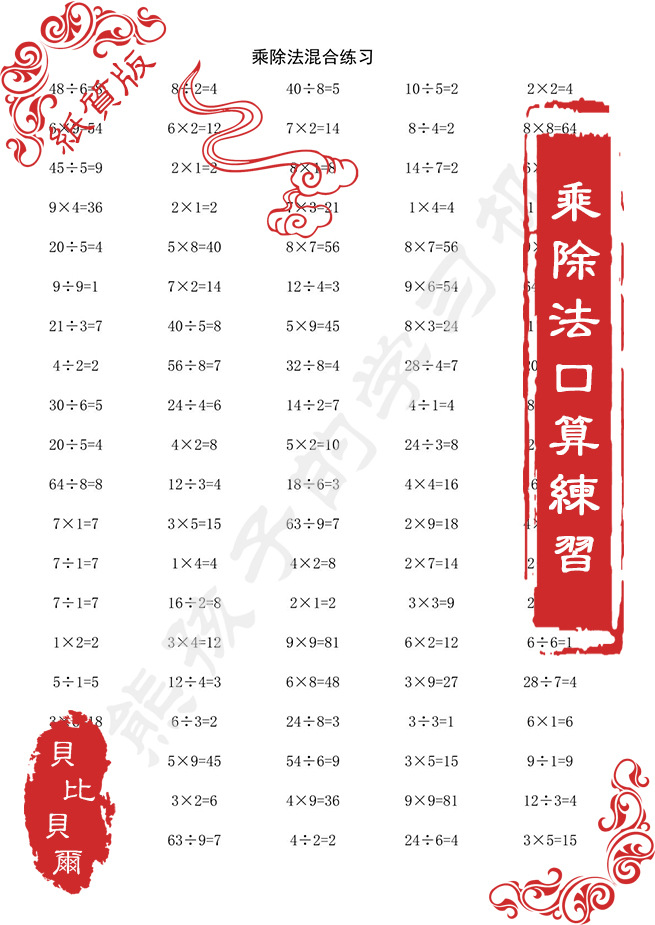 乘除法混合练习
紙質版
48÷6=8 8÷2=4 40÷8=5 10÷5=2 2×2=4
6×9=54 6×2=12 7×2=14 8÷4=2 8×8=64
45÷5=9 2×1=2 8×1=8 14÷7=2
9×4=36 2×1=2 7×3=21 1×4=4
20÷5=4 5×8=40 8×7=56 8×7=56
9÷9=1 7×2=14 12÷4=3 9×6=54
21÷3=7 40÷5=8 5×9=45 8×3=24
4÷2=2 56÷8=7 32÷8=4 28÷4=7
30÷6=5 24÷4=6 14÷2=7 4÷1=4
20÷5=4 4×2=8 5×2=10 24÷3=8
64÷8=8 12÷3=4 18÷6=3 4×4=16
7×1=7 3×5=15 63÷9=7 2×9=18
7÷1=7 1×4=4 4×2=8 2×7=14
7÷1=7 16÷2=8 2×1=2 3×3=9
1×2=2 3×4=12 9×9=81 6×2=12 6÷6=1
5÷1=5 12÷4=3 6×8=48 3×9=27 28÷7=4
6÷3=2 24÷8=3 3÷3=1 6×1=6
5×9=45 54÷6=9 3×5=15 9÷1=9
3×2=6 4×9=36 9×9=81 12÷3=4
63÷9=7 4÷2=2 24÷6=4 3×5=15
乘除法口算練習
貝比貝爾
熊孩子的学习机